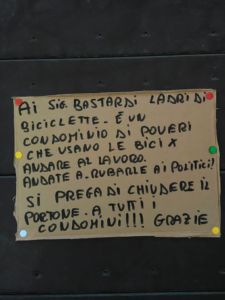 AI SIG. BASTARDI LADRI DI
BICICLETTE. È UN
CONDOMINIO DI POVERI
CHE USANO LE BICI X
ANDARE AL LAVORO.
ANDATE A RUBARLE AI POLITICI!
SI PREGA DI CHIUDERE IL
PORTONE. A TUTTI I
CONDOMINI!!! GRAZIE